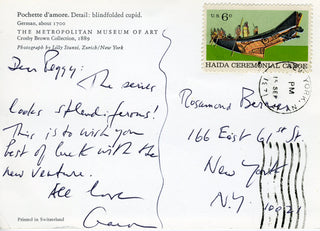 Pochette d'amore. Detail: blindfolded cupid.
German, about 1700
THE METROPOLITAN MUSEUM OF ART
Crosby Brown Collection, 1889
Photograph by Lilly Stunzi, Zurich/New York
U.S. 6c
HAIDA CEREMONIAL CANOE
PM
SEP
Dear Peggy: The series
looks splendiferous!
This is to wish you
best of luck with the
new venture.
All love
Rosamond
166 East 61 St.
New York
N.Y. 10021
Printed in Switzerland